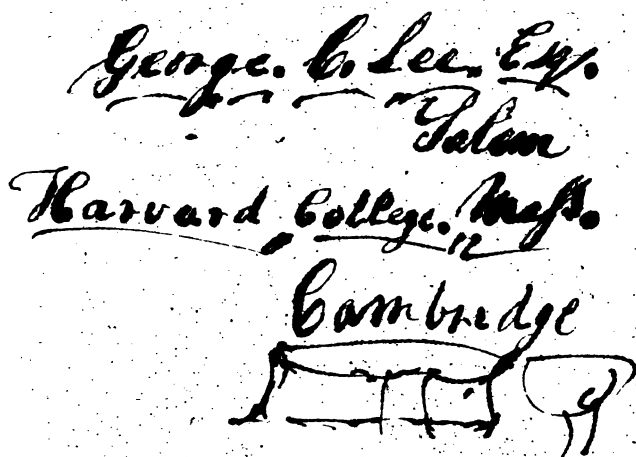 George. C. Lee. Esq.
Salem
Harvard College. Mass.
Cambridge